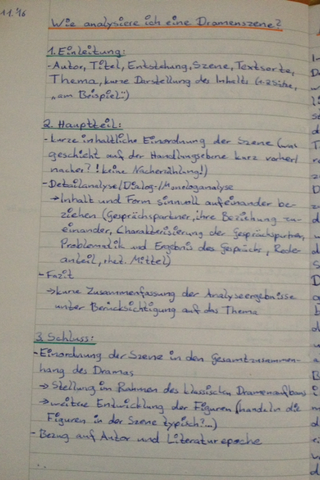 11.'16
Wie analysiere ich eine Dramenszene?
1. Einleitung:
- Autor, Titel, Entstehung, Szene, Textsorte,
Thema, kurze Darstellung des Inhalts (1-2 Sätze,
"am Beispiel")
2. Hauptteil:
- kurze inhaltliche Einordnung der Szene (was
geschieht auf der Handlungsebene kurz vorher/
nachher? (keine Nacherzählung!)
- Detailanalyse/Dialog-/Monologanalyse
→ Inhalt und Form sinnvoll aufeinander be-
ziehen (Gesprächspartner, ihre Beziehung zu-
einander, Charakterisierung der Gesprächspartner,
Problematik und Ergebnis des Gesprächs, Rede-
anteil, rhet. Mittel)
- Fazit
→ kurze Zusammenfassung der Analyseergebnisse
unter Berücksichtigung auf das Thema
3. Schluss:
- Einordnung der Szene in den Gesamtzusammen-
hang des Dramas
→ Stellung im Rahmen des klassischen Dramenaufbaus
→ weitere Entwicklung der Figuren (handeln die
Figuren in der Szene typisch?...)
- Bezug auf Autor und Literaturepoche